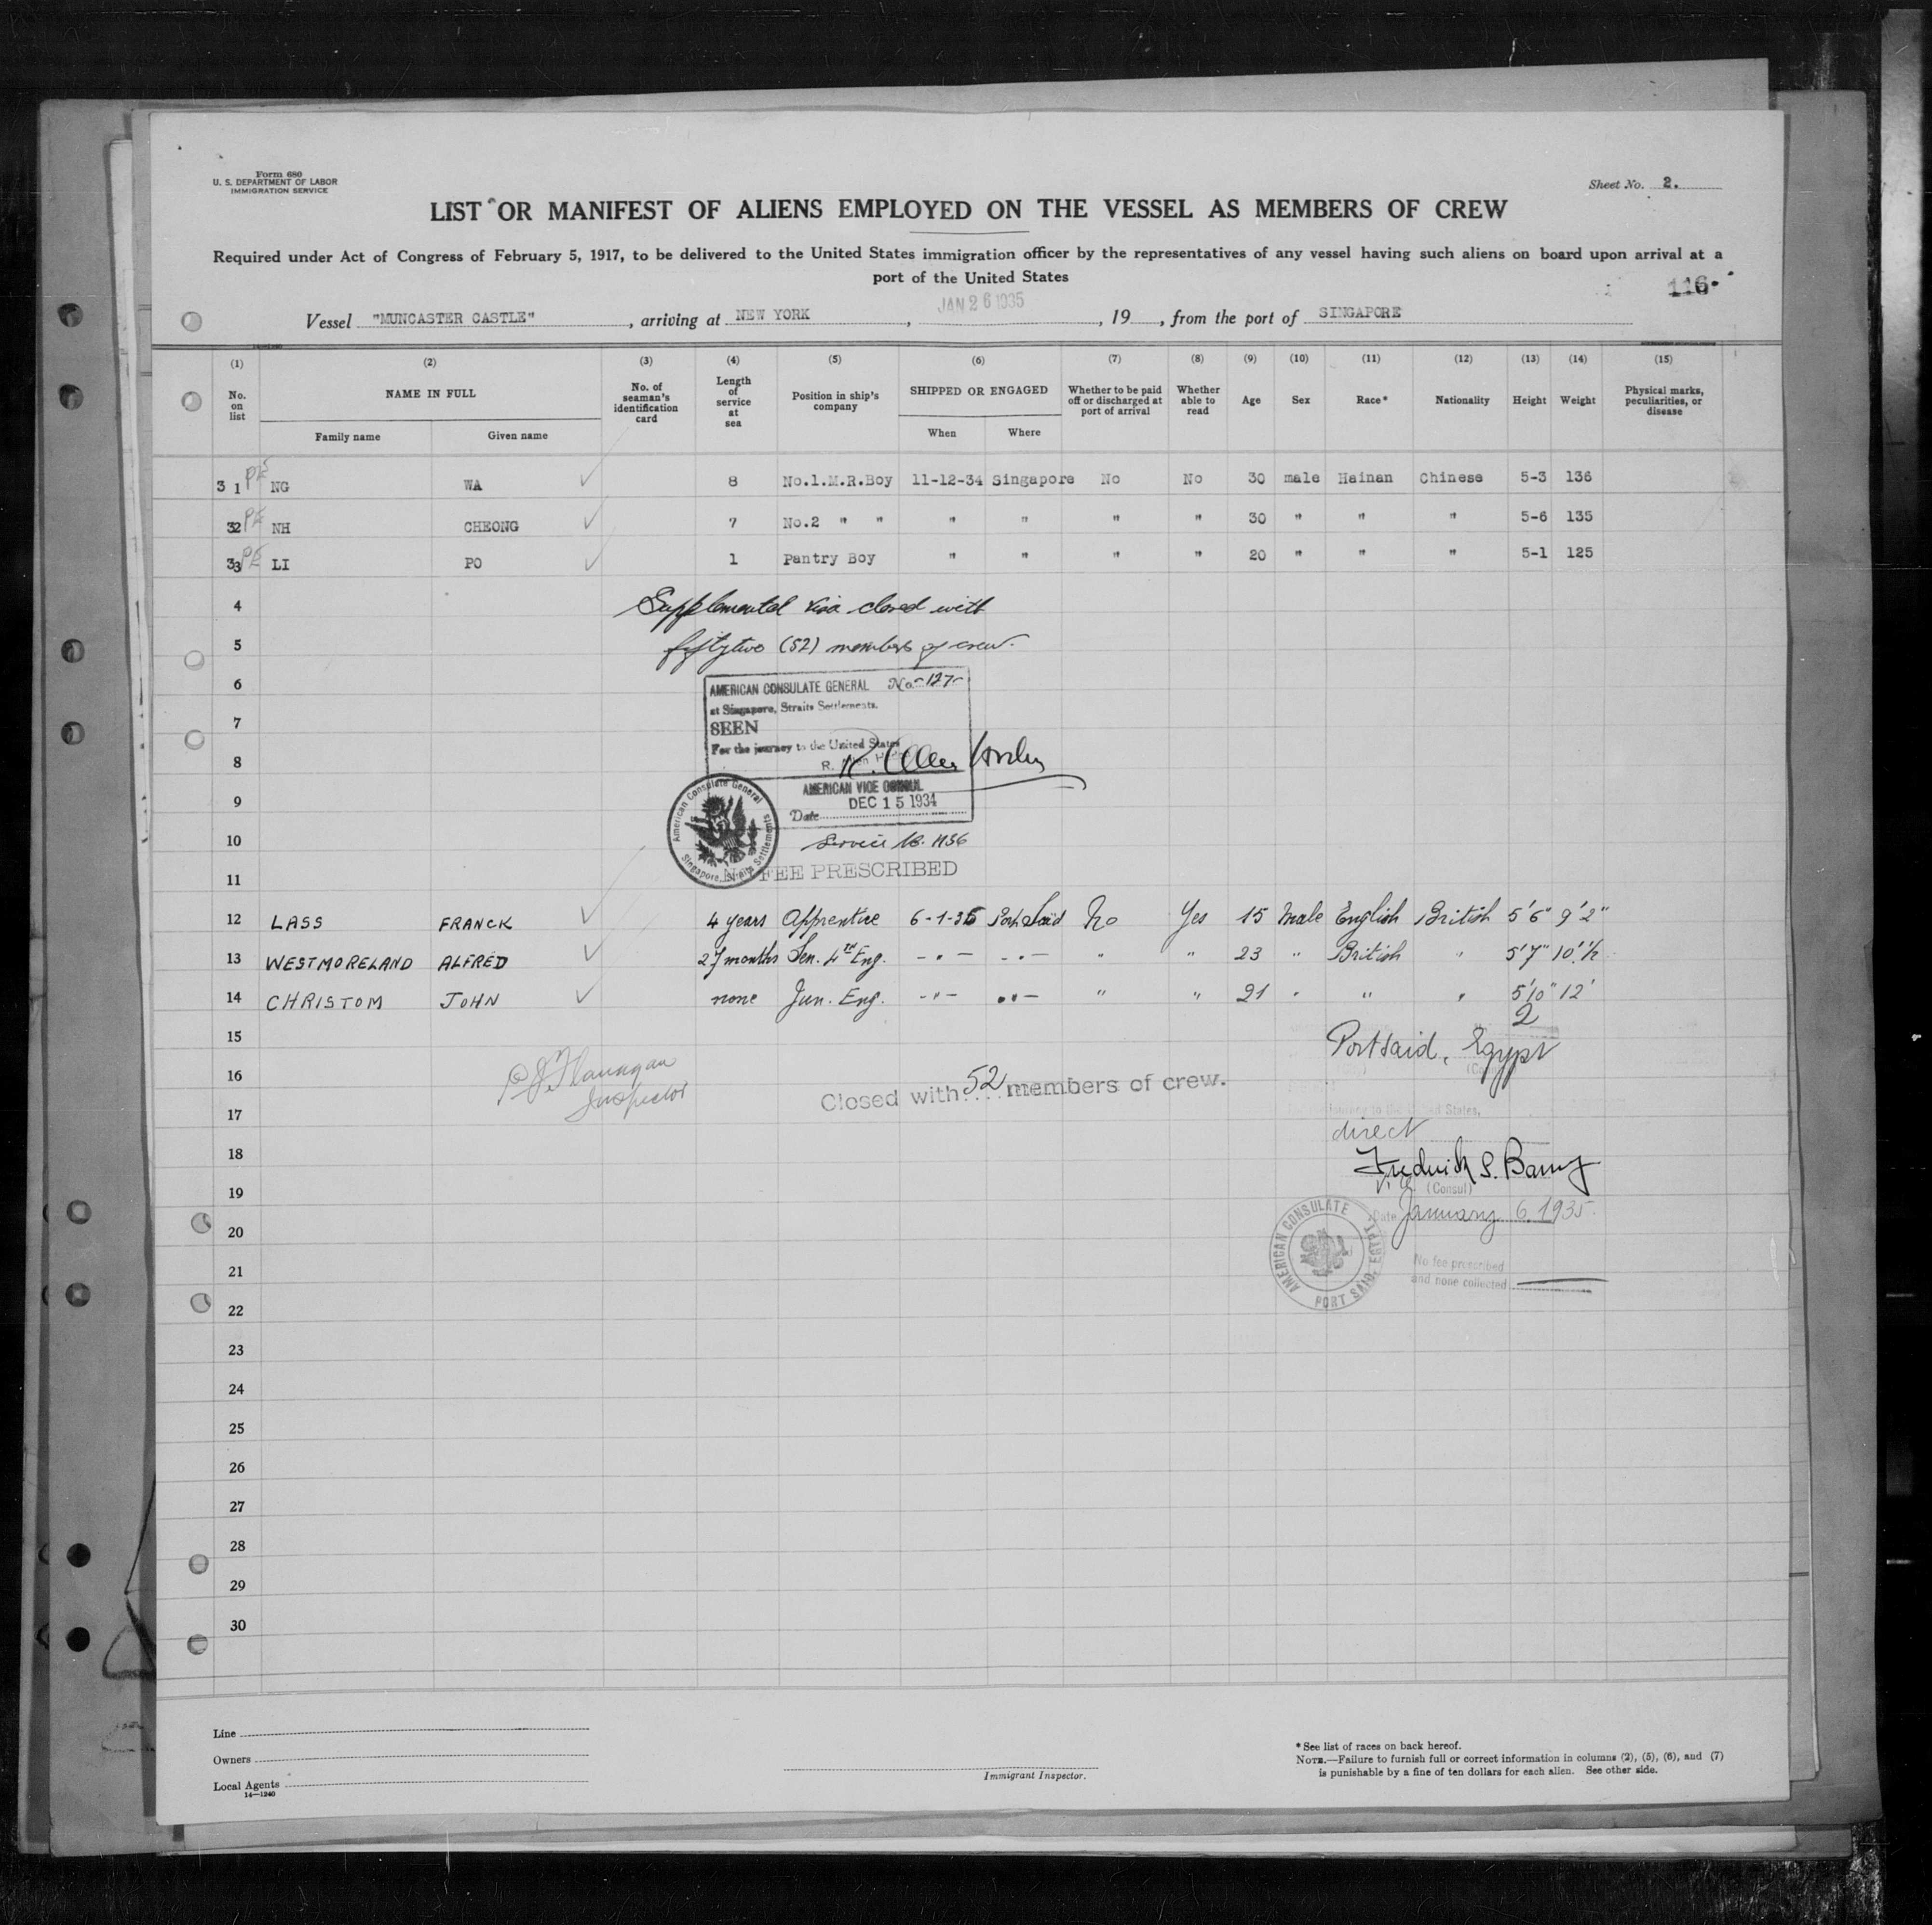 Form 680
U. S. DEPARTMENT OF LABOR
IMMIGRATION SERVICE
Sheet No. 2.
LIST OR MANIFEST OF ALIENS EMPLOYED ON THE VESSEL AS MEMBERS OF CREW
Required under Act of Congress of February 5, 1917, to be delivered to the United States immigration officer by the representatives of any vessel having such aliens on board upon arrival at a
port of the United States
116
Vessel "MUNCASTER CASTLE", arriving at NEW YORK, JAN 26 1935, 19, from the port of SINGAPORE
(1) (2) (3) (4) (5) (6) (7) (8) (9) (10) (11) (12) (13) (14) (15)
No. on list NAME IN FULL No. of seaman's identification card Length of service at sea Position in ship's company SHIPPED OR ENGAGED Whether to be paid off or discharged at port of arrival Whether able to read Age Sex Race* Nationality Height Weight Physical marks, peculiarities, or disease
Family name Given name When Where
31 NG WA 8 No.1.M.R.Boy 11-12-34 Singapore No No 30 male Hainan Chinese 5-3 136
32 NH CHEONG 7 No.2 " " " " " " 30 " " " 5-6 135
33 LI PO 1 Pantry Boy " " " " 20 " " " 5-1 125
4 Supplemental visa closed with
5 fiftytwo (52) members of crew.
6 AMERICAN CONSULATE GENERAL No -127-
at Singapore, Straits Settlements.
7 SEEN
For the journey to the United States
8 R. Allen
AMERICAN VICE CONSUL
9 DEC 15 1934
Date
American Consulate General Singapore, Straits Settlements
10 Service No. 1136
11 FEE PRESCRIBED
12 LASS FRANCK 4 years Apprentice 6-1-35 Port Said No Yes 15 Male English British 5'6" 9'2"
13 WESTMORELAND ALFRED 27 months Sen. 4TH Eng. -"- -"- " " 23 " British " 5'7" 10'.½
14 CHRISTOM JOHN none Jun. Eng. -"- -"- " " 21 " " " 5'10" 12'
2
15 Port Said, Egypt
16 Flannagan
Inspector
Closed with 52 members of crew.
17 journey to the United States,
direct
18 Fredrick S. Barny
19 (Consul)
20 Date January 6, 1935.
AMERICAN CONSULATE PORT SAID, EGYPT.
21 No fee prescribed
and none collected
22
23
24
25
26
27
28
29
30
Line
Owners
Local Agents
14—1240
Immigrant Inspector.
* See list of races on back hereof.
NOTE.—Failure to furnish full or correct information in columns (2), (5), (6), and (7)
is punishable by a fine of ten dollars for each alien. See other side.